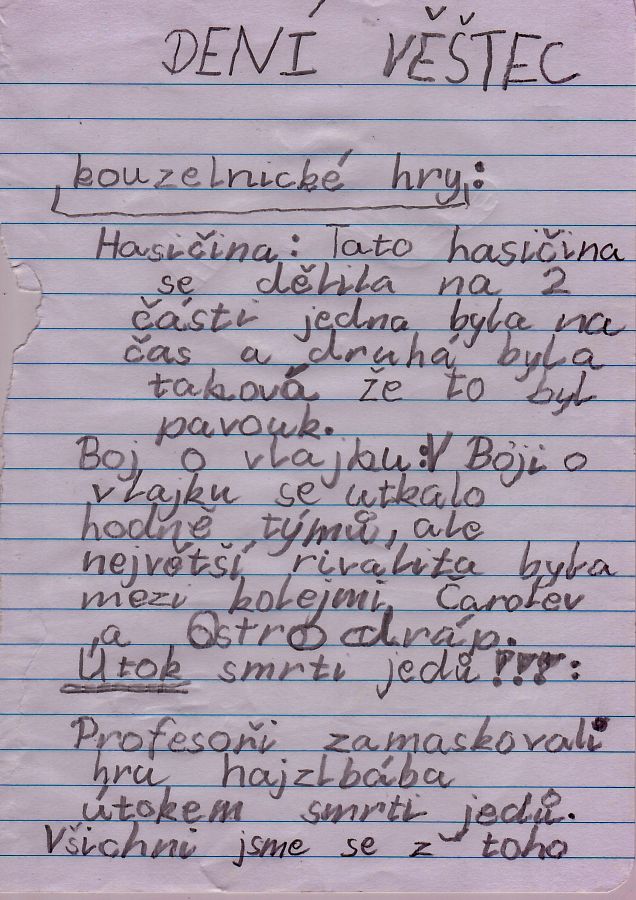 DENÍ VĚŠTEC
kouzelnické hry:
Hasičina: Tato hasičina
se dělila na 2
části jedna byla na
čas a druhá byla
taková že to byl
pavouk.
Boj o vlajku: V Boji o
vlajku se utkalo
hodně týmů, ale
největší rivalita byla
mezi kolejmi Čarolev
,a Ostrodráp.
Útok smrti jedů!!!:
Profesoři zamaskovali
hru hajzlbába
útokem smrti jedů.
Všichni jsme se z toho